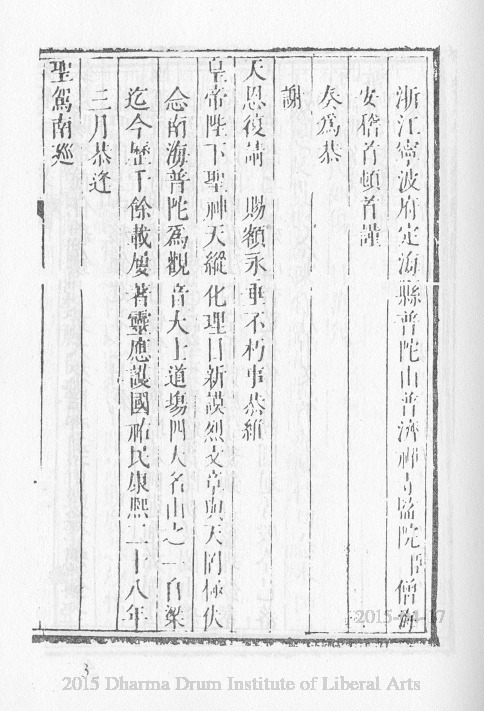 浙江寧波府定海縣普陀山普濟禪寺臨院臣僧
安稽首頓首謹
奏爲恭
謝
天恩復請 賜額永垂不朽事恭維
皇帝陛下聖神天縱化理日新謨烈文章與天同極伏
念南海普陀爲觀音大士道場四大名山之一自梁
迄今歷千餘載屢著靈應護國祐民康熙二十八年
三月恭逢
聖駕南廵
3
2015 Dharma Drum Institute of Liberal Arts